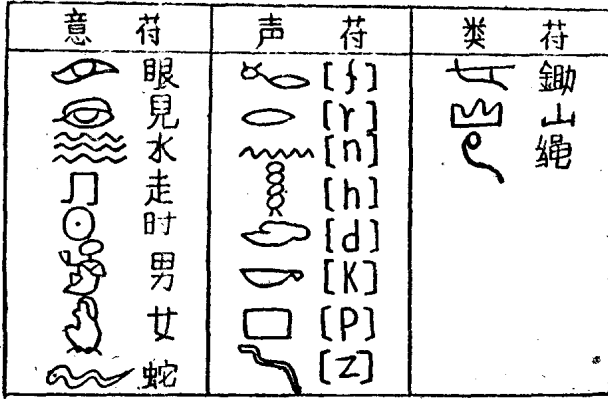 意符 声符 类符
眼 [f] 鋤
見 [r] 山
水 [n] 繩
走 [h]
时 [d]
男 [K]
女 [P]
蛇 [Z]